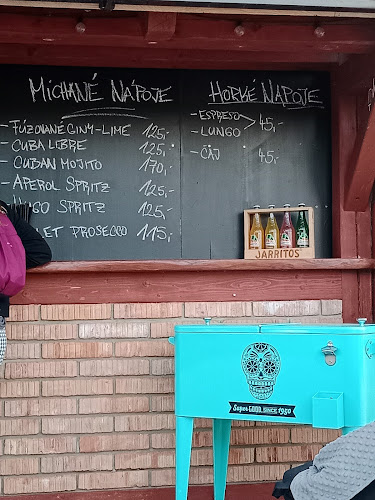 MÍCHANÉ NÁPOJE
- FÚZOVANÉ GINY-LIME 125,-
- CUBA LIBRE 125,-
- CUBAN MOJITO 170,-
- APEROL SPRITZ 125,-
SPRITZ 125,-
PROSECCO 115,-
HORKÉ NÁPOJE
- ESPRESO
- LUNGO 45,-
- ČAJ 45,-
JARRITOS
Super GOOD SINCE 1950